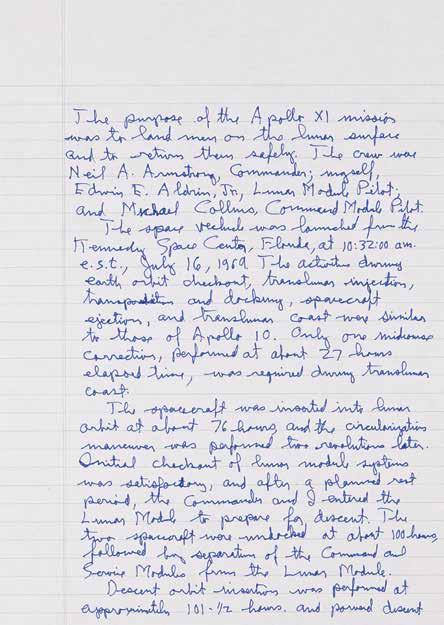 The purpose of the Apollo XI mission
was to land men on the lunar surface
and to return them safely. The crew was
Neil A. Armstrong, Commander; myself,
Edwin E. Aldrin, Jr., Lunar Module Pilot;
and Michael Collins, Command Module Pilot.
The space vechicle was launched from the
Kennedy Space Center, Florida, at 10:32:00 am.
e.s.t., July 16, 1969 The activities during
earth orbit checkout, translunar injection,
transposition and docking, spacecraft
ejection, and translunar coast were similar
to those of Apollo 10. Only one midcourse
correction, performed at about 27 hours
elapsed time, was required during translunar
coast.
The spacecraft was inserted into lunar
orbit at about 76 hours, and the circularization
maneuver was performed two revolutions later.
Initial checkout of lunar module systems
was satisfactory, and after a planned rest
period, the Commander and I entered the
Lunar Module to prepare for descent. The
two spacecraft were undocked at about 100 hours,
followed by separation of the Command and
Service Modules from the Lunar Module.
Descent orbit insertion was performed at
approximately 101-1/2 hours. and powered descent